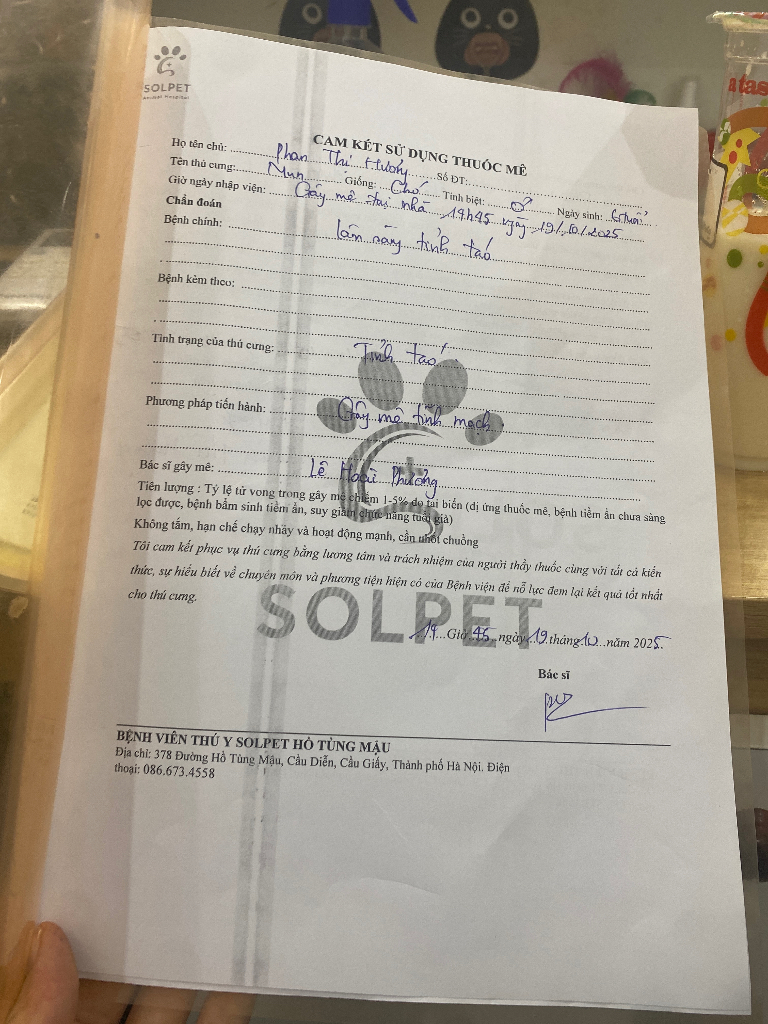 SOLPET
Animal Hospital
CAM KẾT SỬ DỤNG THUỐC MÊ
Họ tên chủ: Phan Thị Hường Số ĐT:
Tên thú cưng: Mun Giống: Chó Tính biệt: ♂ Ngày sinh: 6 tuổi
Giờ ngày nhập viện: Gây mê tại nhà 19h45 ngày 19/10/2025
Chẩn đoán
Bệnh chính: lâm sàng tỉnh táo
Bệnh kèm theo:
Tình trạng của thú cưng: Tỉnh táo
Phương pháp tiến hành: Gây mê tĩnh mạch
Bác sĩ gây mê: Lê Hoài Phương
Tiên lượng : Tỷ lệ tử vong trong gây mê chiếm 1-5% do tai biến (dị ứng thuốc mê, bệnh tiềm ẩn chưa sàng
lọc được, bệnh bẩm sinh tiềm ẩn, suy giảm chức năng tuổi già)
Không tắm, hạn chế chạy nhảy và hoạt động mạnh, cần nhốt chuồng
Tôi cam kết phục vụ thú cưng bằng lương tâm và trách nhiệm của người thầy thuốc cùng với tất cả kiến
thức, sự hiểu biết về chuyên môn và phương tiện hiện có của Bệnh viện để nỗ lực đem lại kết quả tốt nhất
cho thú cưng.
SOLPET
19 Giờ 45 ngày 19 tháng 10 năm 2025
Bác sĩ
BỆNH VIÊN THÚ Y SOLPET HỒ TÙNG MẬU
Địa chỉ: 378 Đường Hồ Tùng Mậu, Cầu Diễn, Cầu Giấy, Thành phố Hà Nội. Điện
thoại: 086.673.4558